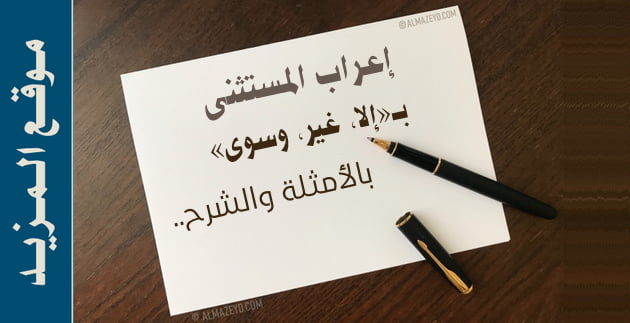 © ALMAZEYD.COM
إعراب المستثنى
بـ«إلا، غير، وسوى»
بالأمثلة والشرح..
© ALMAZEYD.COM
موقع المزيد